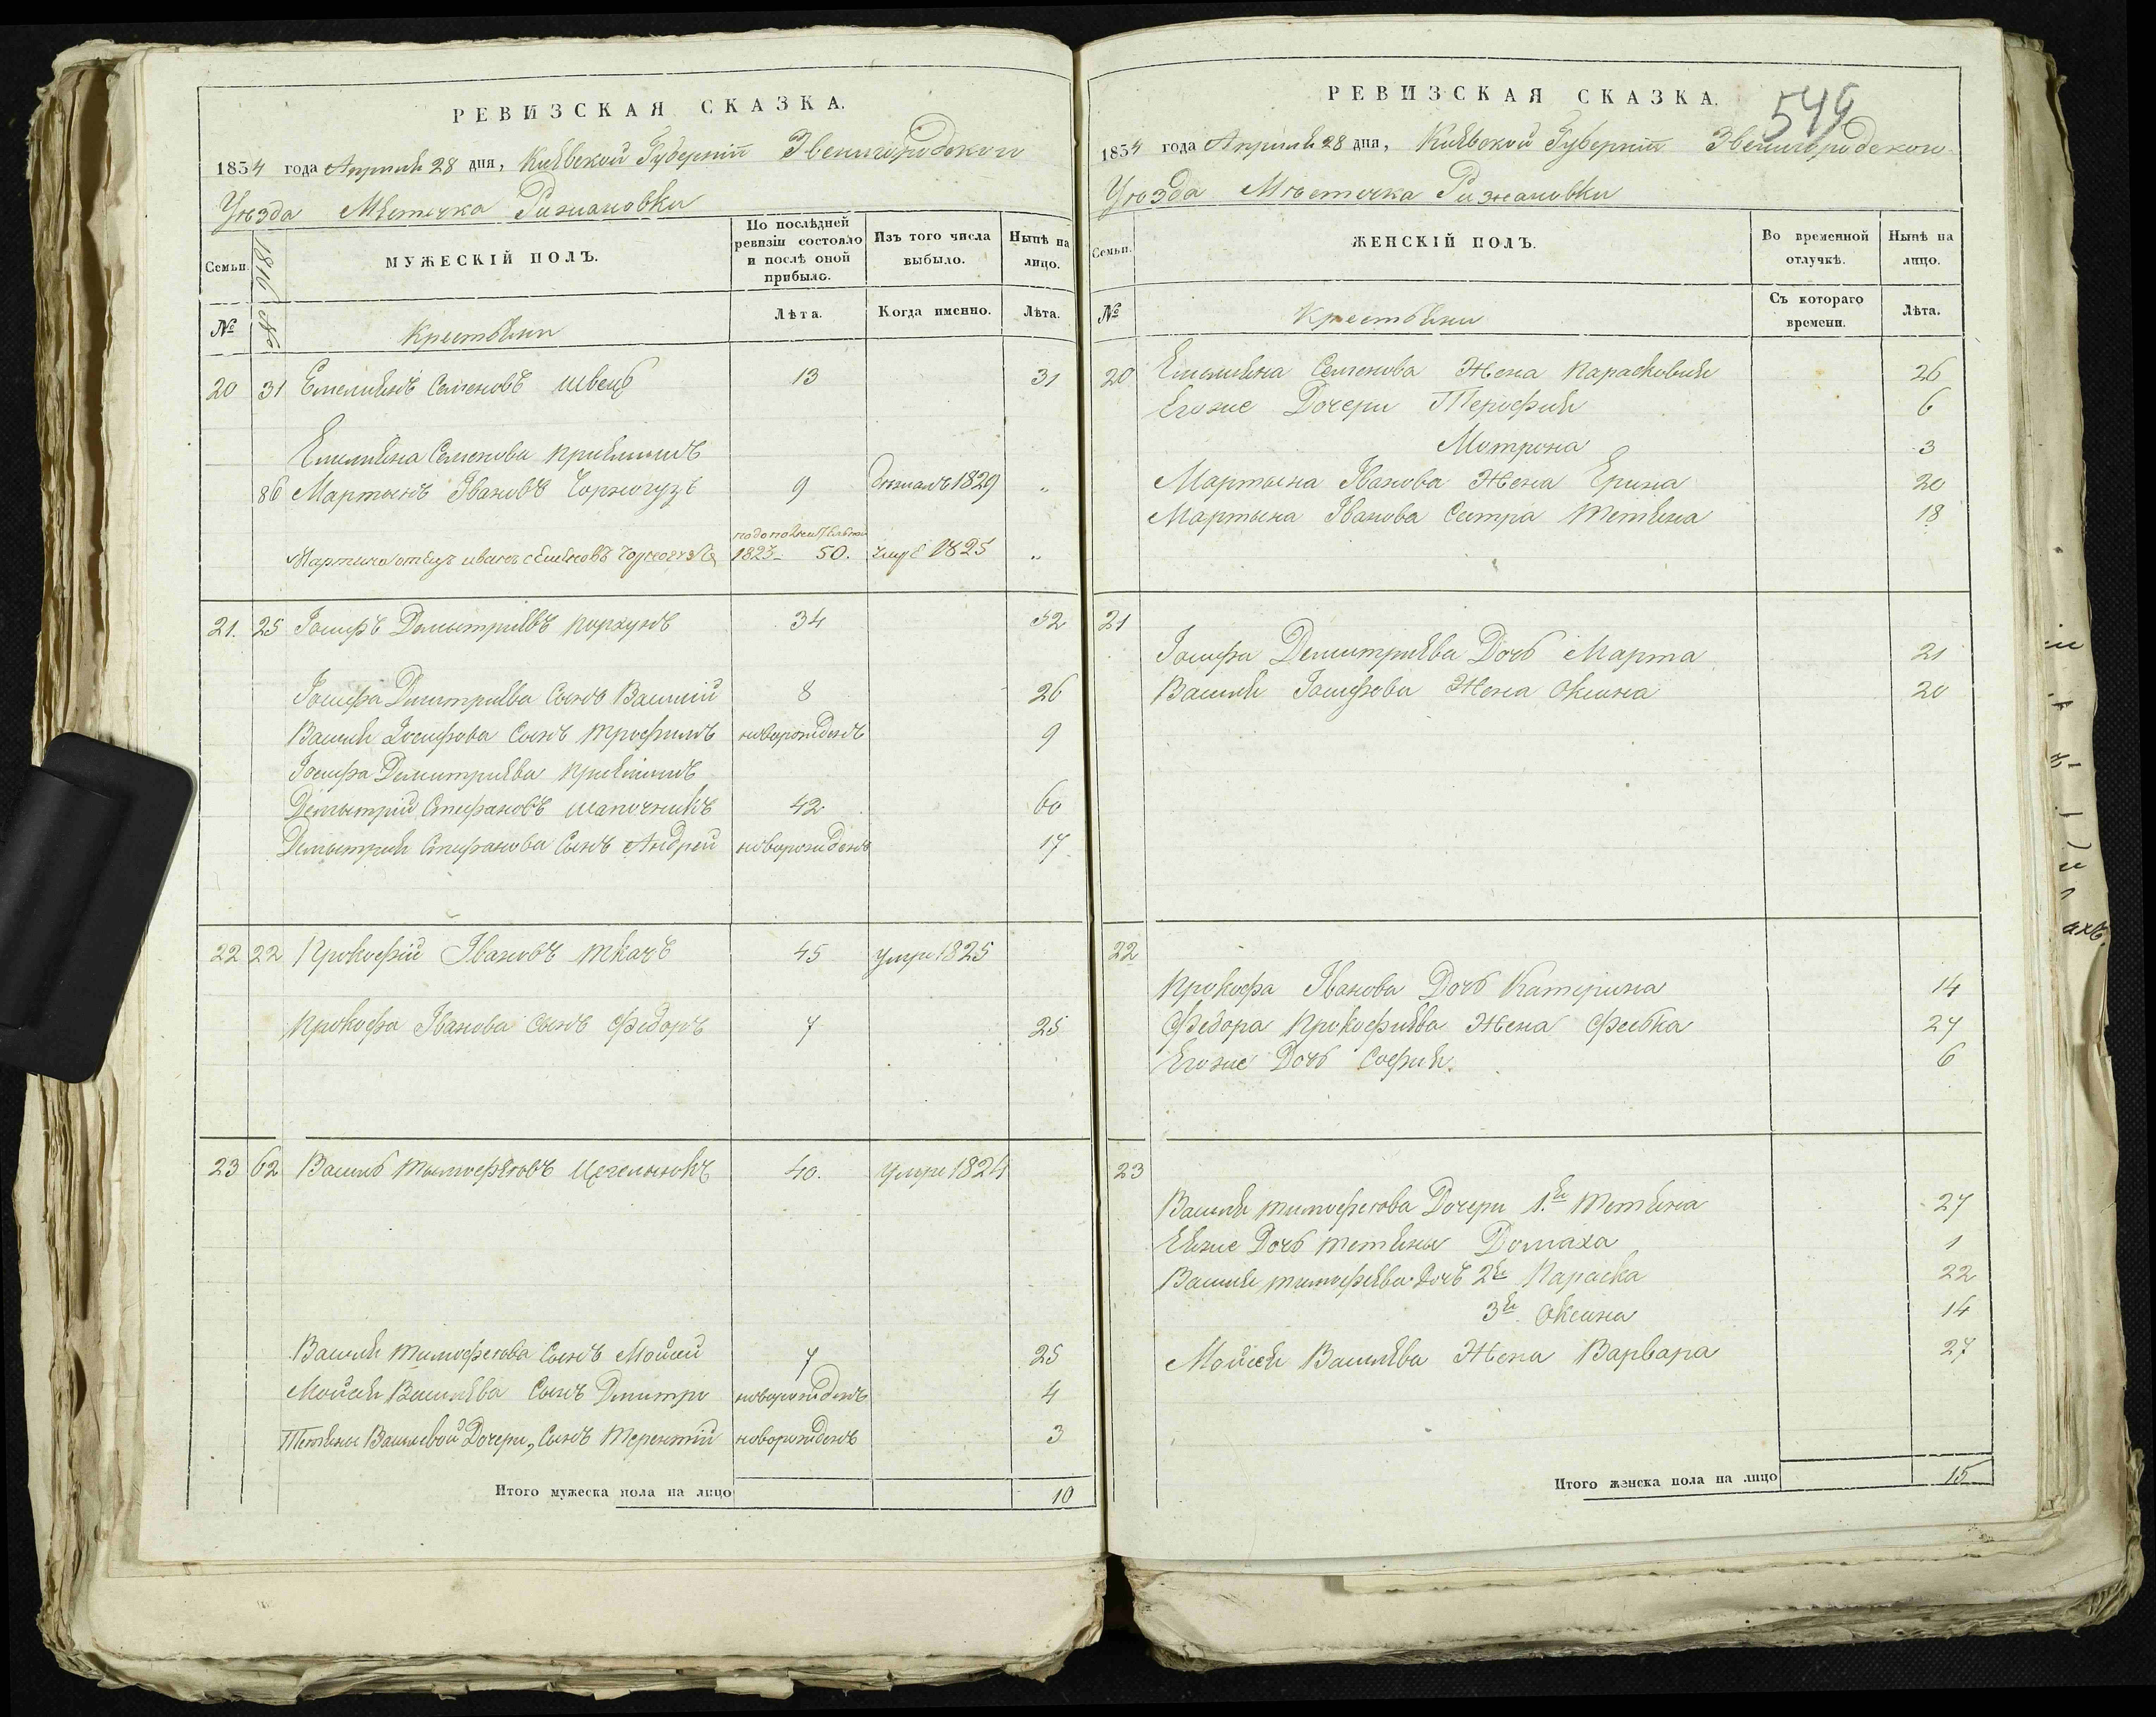 РЕВИЗСКАЯ СКАЗКА.
1834 года Апреля 28 дня, Киевской Губернии Звенигородского
Уезда Местечка Рижановки
Семьи.
1816 №
МУЖЕСКІЙ ПОЛЪ.
По послѣдней ревизіи состояло и послѣ оной прибыло.
Изъ того числа выбыло.
Нынѣ на лицо.
№
Крестьяни
Лѣта.
Когда именно.
Лѣта.
20 31 Емельянъ Семеновъ Швець 13 31
Емельяна Семенова приемышъ
86 Мартынъ Івановъ Чорногузъ 9 1829 „
1823 50. 1825 „
21. 25 Іосифъ Демытриевъ Коржунъ 34 52
Іосифа Димитриева Сынъ Василий 8 26
Василя Іосифова Сынъ Трофимъ новорожденъ 9
Іосифа Димитриева приемышъ
Демытрий Стефановъ Шапочникъ 42 60
Демытрия Стефанова Сынъ Андрей новорожденъ 17
22 22 Прокофий Івановъ Ткачъ 45 умре 1825
Прокофа Іванова Сынъ Федоръ 7 25
23 62 Василь Тымофеювъ Цегельнюкъ 40. умре 1824
Василя Тимофеова Сынъ Мойсей 7 25
Мойсея Василева Сынъ Дмитро новорожденъ 4
Тетяны Василевой Дочери, Сынъ Терентий новорожденъ 3
Итого мужеска пола на лицо 10
РЕВИЗСКАЯ СКАЗКА.
549
1834 года Апреля 28 дня, Киевской Губернии Звенигородского
Уезда Местечка Рижановки
Семьи.
ЖЕНСКІЙ ПОЛЪ.
Во временной отлучкѣ.
Нынѣ на лицо.
№
Крестьяни
Съ котораго времени.
Лѣта.
20 Емельяна Семенова Жена Парасковия 26
Егоже Дочери Терофия 6
Мотрона 3
Мартына Іванова Жена Ерина 20
Мартына Іванова Сестра Тетяна 18
21
Іосифа Демитриева Дочь Марта 21
Василя Іосифова Жена Оксина 20
22
Прокофа Іванова Дочь Катерина 14
Федора Прокофиева Жена Феська 24
Егоже Дочь София. 6
23
Василя Тимофеова Дочери 1.я Тетяна 27
Еяже Дочь Тетяны Домаха 1
Василя Тимофеева Дочь 2я Параска 22
3я. Оксина 14
Мойсея Василева Жена Варвара 27
Итого женска пола на лицо 15